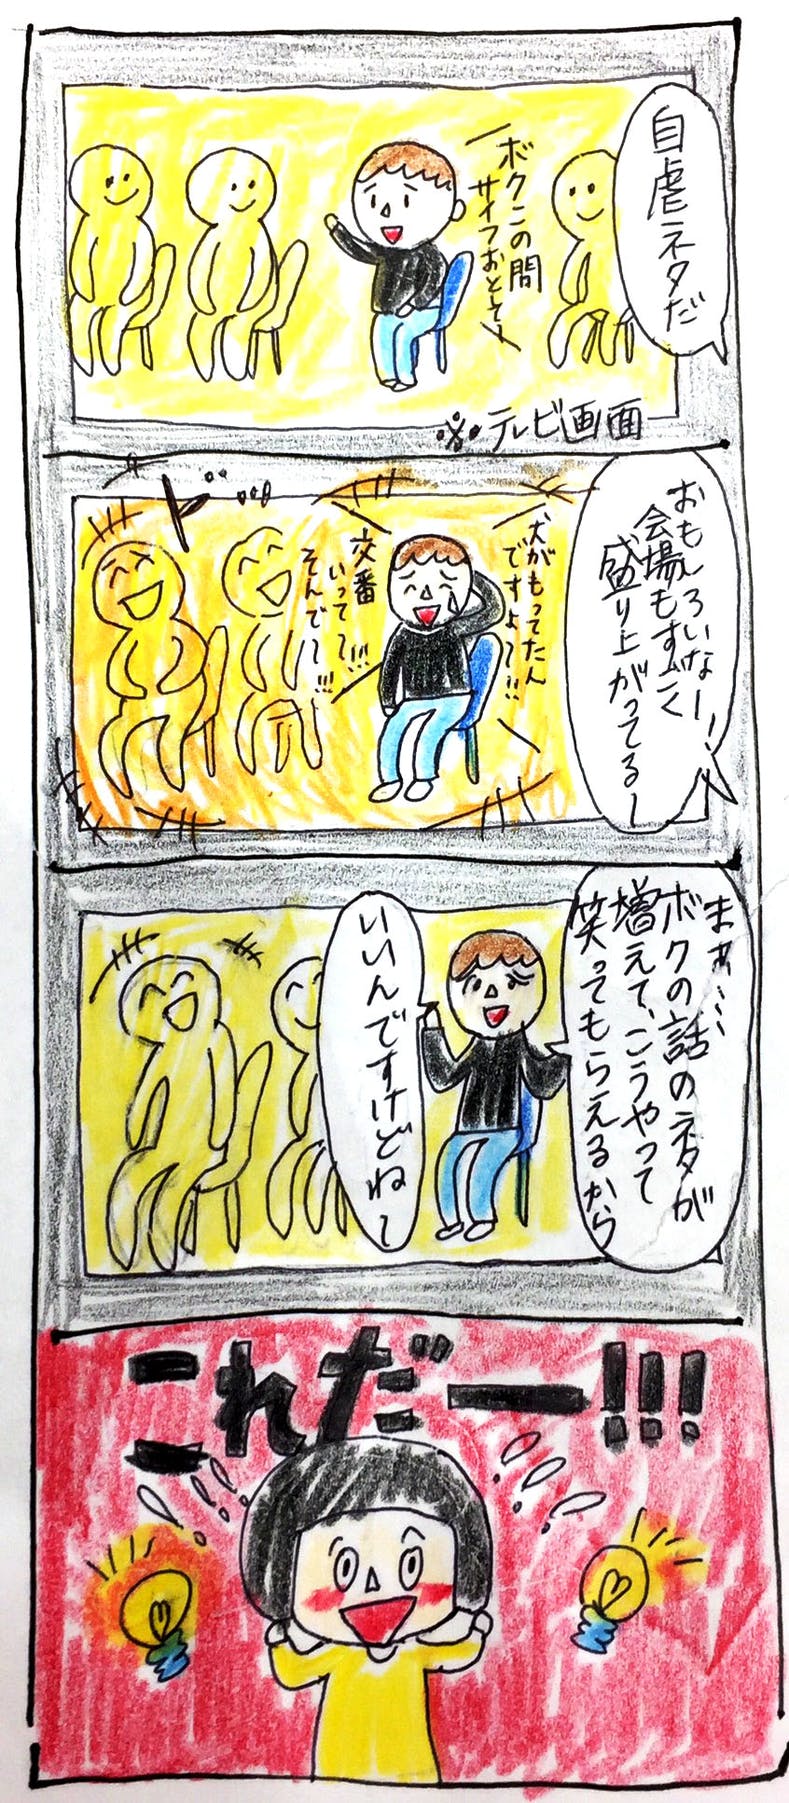 自虐ネタだ
ボクこの間
サイフおとして〜
※テレビ画面
おもしろいなー!
会場もすごく
盛り上がってるー
ド
犬がもってたん
ですよ〜!!
交番
いって〜!!!
そんで〜!!!
まぁ……
ボクの話のネタが
増えて、こうやって
笑ってもらえるから
いいんですけどね〜
これだー!!!